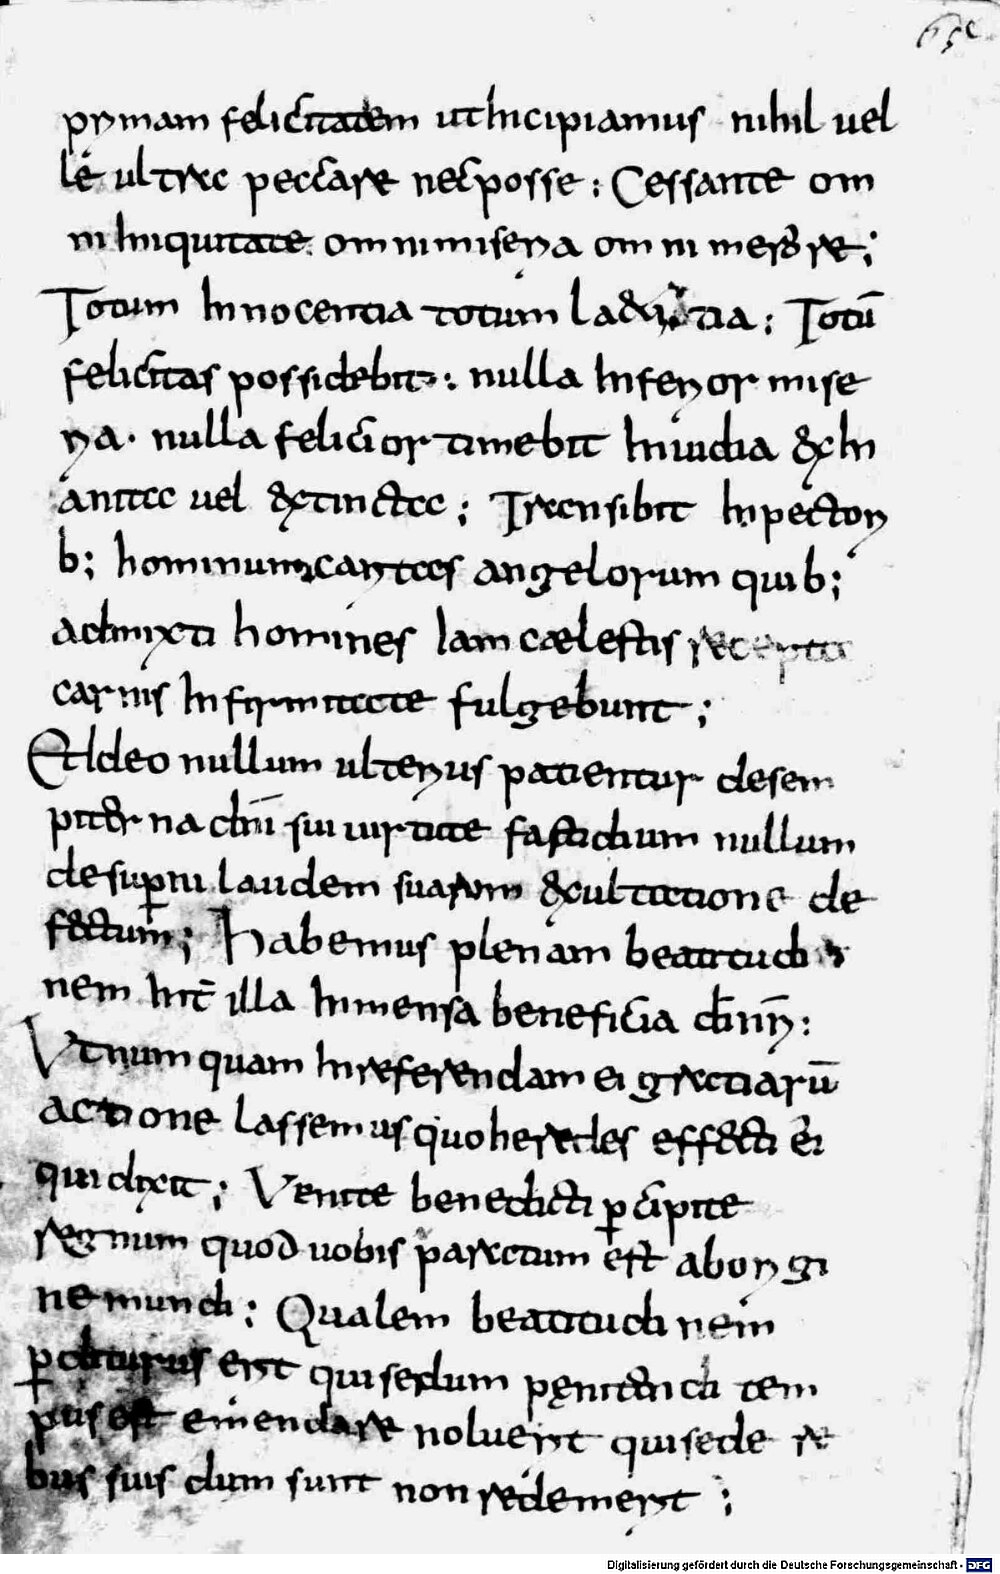 65c
primam felicitatem ut Incipiamus nihil vel
le ultra peccare nec posse: Cessante om
ni Iniquitate omni miseria omni merore;
Totum Innocentia totum laetitia: Totū
felicitas possidebit: nulla Inferior mise
ria. nulla felicior timebit Inuidia ex In
anita uel extincta; Transibit In pectori
b; hominum caritas angelorum quib;
admixti homines Iam cælestis recepta
carnis Infirmitate fulgebunt;
Et Ideo nullum ulterius patientur de sem
piterna dnī sui uirtute fastidium nullum
de sup̱ni laudem suarum exultatione de
fectum; Habemus plenam beatitudi
nem Int̄ illa Inmensa beneficia dn̄i n̄ri:
Ut numquam In referendam ei gratiarū
actione lassemus quo heredes effecti ei
qui dixit; Venite benedicti p̱cipite
regnum quod uobis paratum est ab origi
ne mundi: Qualem beatitudinem
p̱diturus erit qui se dum penitendi tem
pus est emendare noluerit qui se de re
bus suis dum sunt non redemerit;
Digitalisierung gefördert durch die Deutsche Forschungsgemeinschaft - DFG